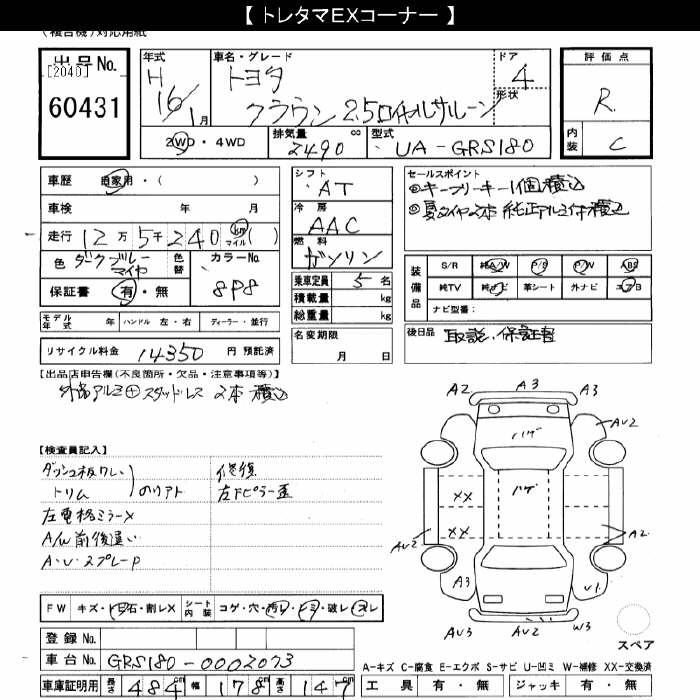 【 トレタマEXコーナー 】
(複合機)対応用紙
出品No.
[2040]
60431
年式
H
16/1月
車名・グレード
トヨタ
クラウン 2.5ロイヤルサルーン
ドア
4
形状
評価点
R
内装
C
2WD・4WD
排気量 cc
2490
型式
UA-GRS180
車歴 自家用・( )
車検 年 月
走行 12万5千240 km マイル ( )
色 ダークブルーマイカ
色替
カラーNo.
8P8
保証書 有・無
モデル年式 年 ハンドル 左・右 ディーラー・並行
リサイクル料金 14350 円 預託済
シフト
AT
冷房
AAC
燃料
ガソリン
乗車定員 5 名
積載量 kg
総重量 kg
名変期限
月 日
セールスポイント
◎キーフリーキー1個積込
◎夏タイヤ2本 純正アルミ付積込
装備品
S/R 純A/W P/S P/W ABS
純TV 純ナビ 革シート 外ナビ エアB
ナビ型番:
後日品 取説、保証書
【出品店申告欄(不良箇所・欠品・注意事項等)】
外品アルミ+スタッドレス 2本積込
【検査員記入】
ダッシュ板ワレ
トリム
のりアト
左電格ミラーX
A/W前後違い
A・U・スプレーP
修復
左Fピラー歪
A2 A3 A3
AU2
ハゲ
ハゲ
XX
XX
AU2
A2
A3
U1
AU3 AU2 W3
スペア
FW キズ・ト石・割レX
シート内装 コゲ・穴・汚レ・シミ・破レ・スレ
登録No.
車台No. GRS180-0002073
車庫証明用 長さ 484cm 幅 178cm 高さ 147cm
A-キズ C-腐食 E-エクボ S-サビ U-凹ミ W-補修 XX-交換済
工具 有・無 ジャッキ 有・無